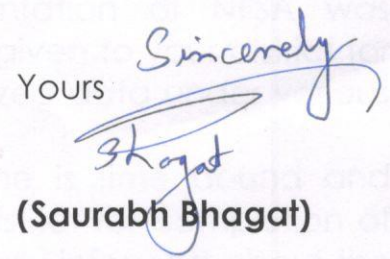 Yours Sincerely
Bhagat
(Saurabh Bhagat)